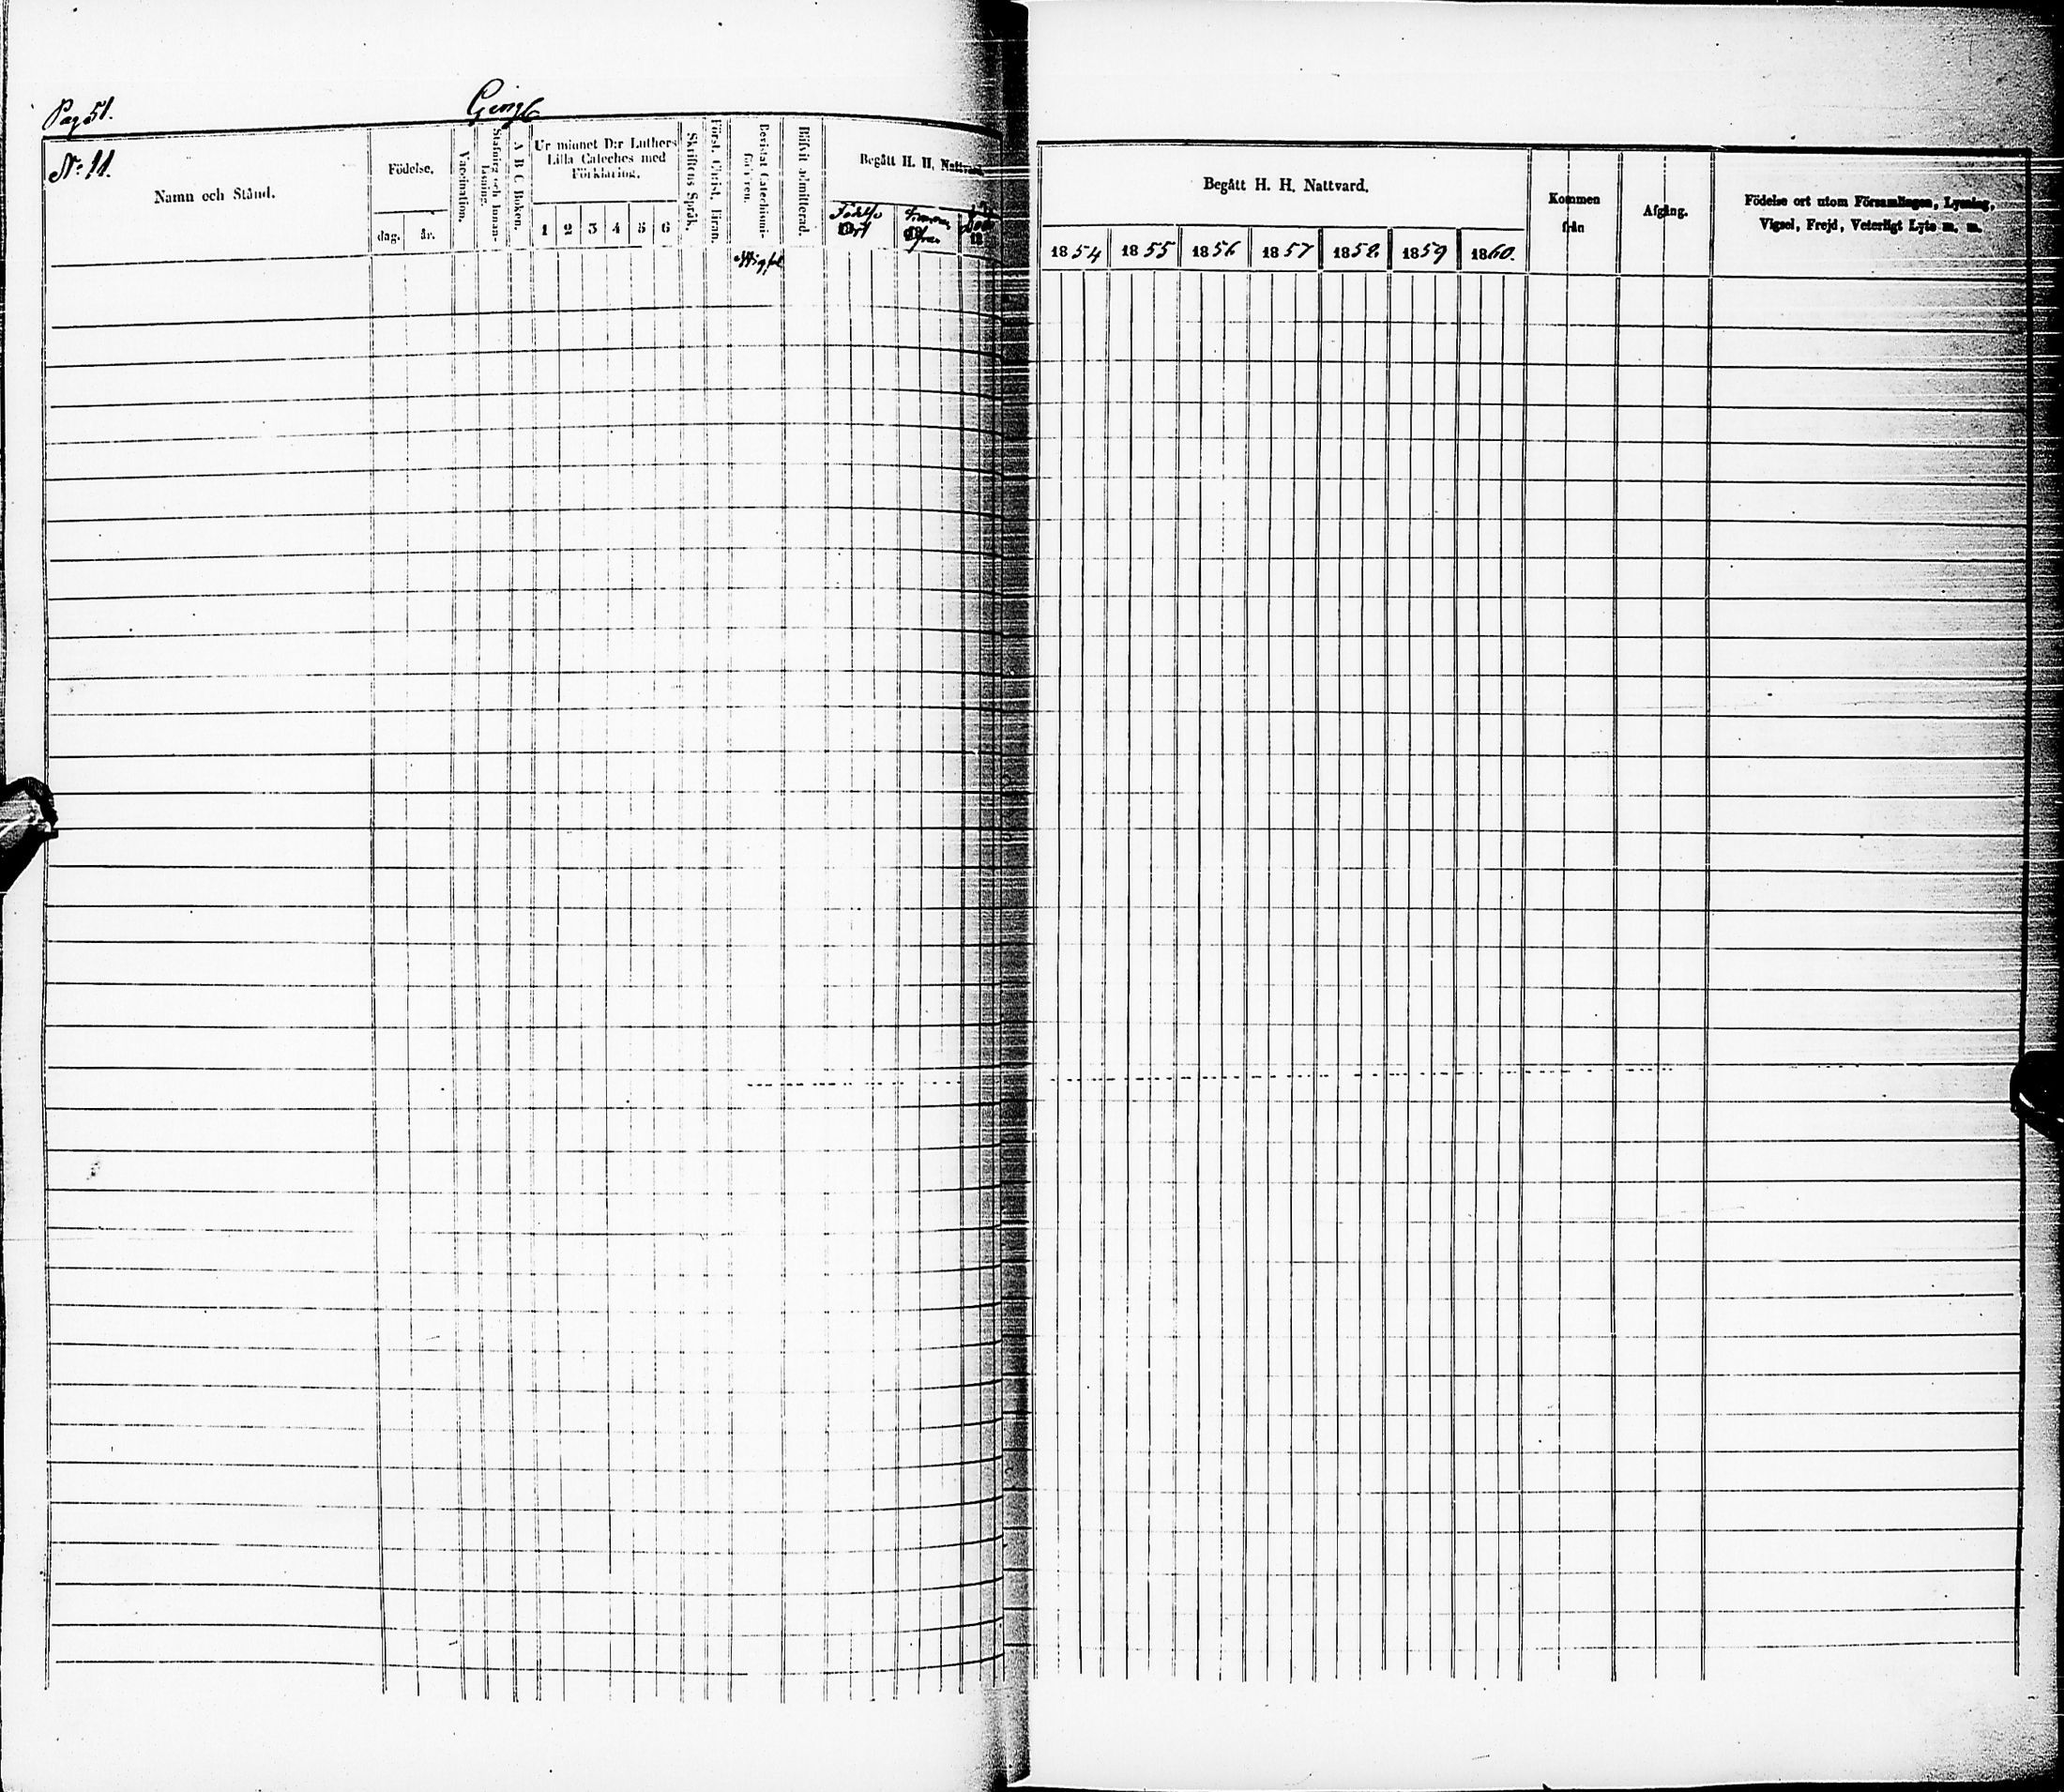 Pag 51.
No 11.
Namn och Stånd.
Födelse.
dag.
år.
Vaccination.
Stafning och Innan-
läsning.
A B C Boken.
Ur minnet D:r Luthers
Lilla Cateches med
Förklaring.
1 2 3 4 5 6
Skriftens Språk.
Först. Christ. Firan.
Bevistat Catechismi-
förhören.
Wigsel
Blifvit admitterad.
Begått H. H. Nattvard.
Begått H. H. Nattvard.
1854 1855 1856 1857 1858. 1859 1860.
Kommen
från
Afgång.
Födelse ort utom Församlingen, Lysning,
Vigsel, Frejd, Veterligt Lyte m. m.